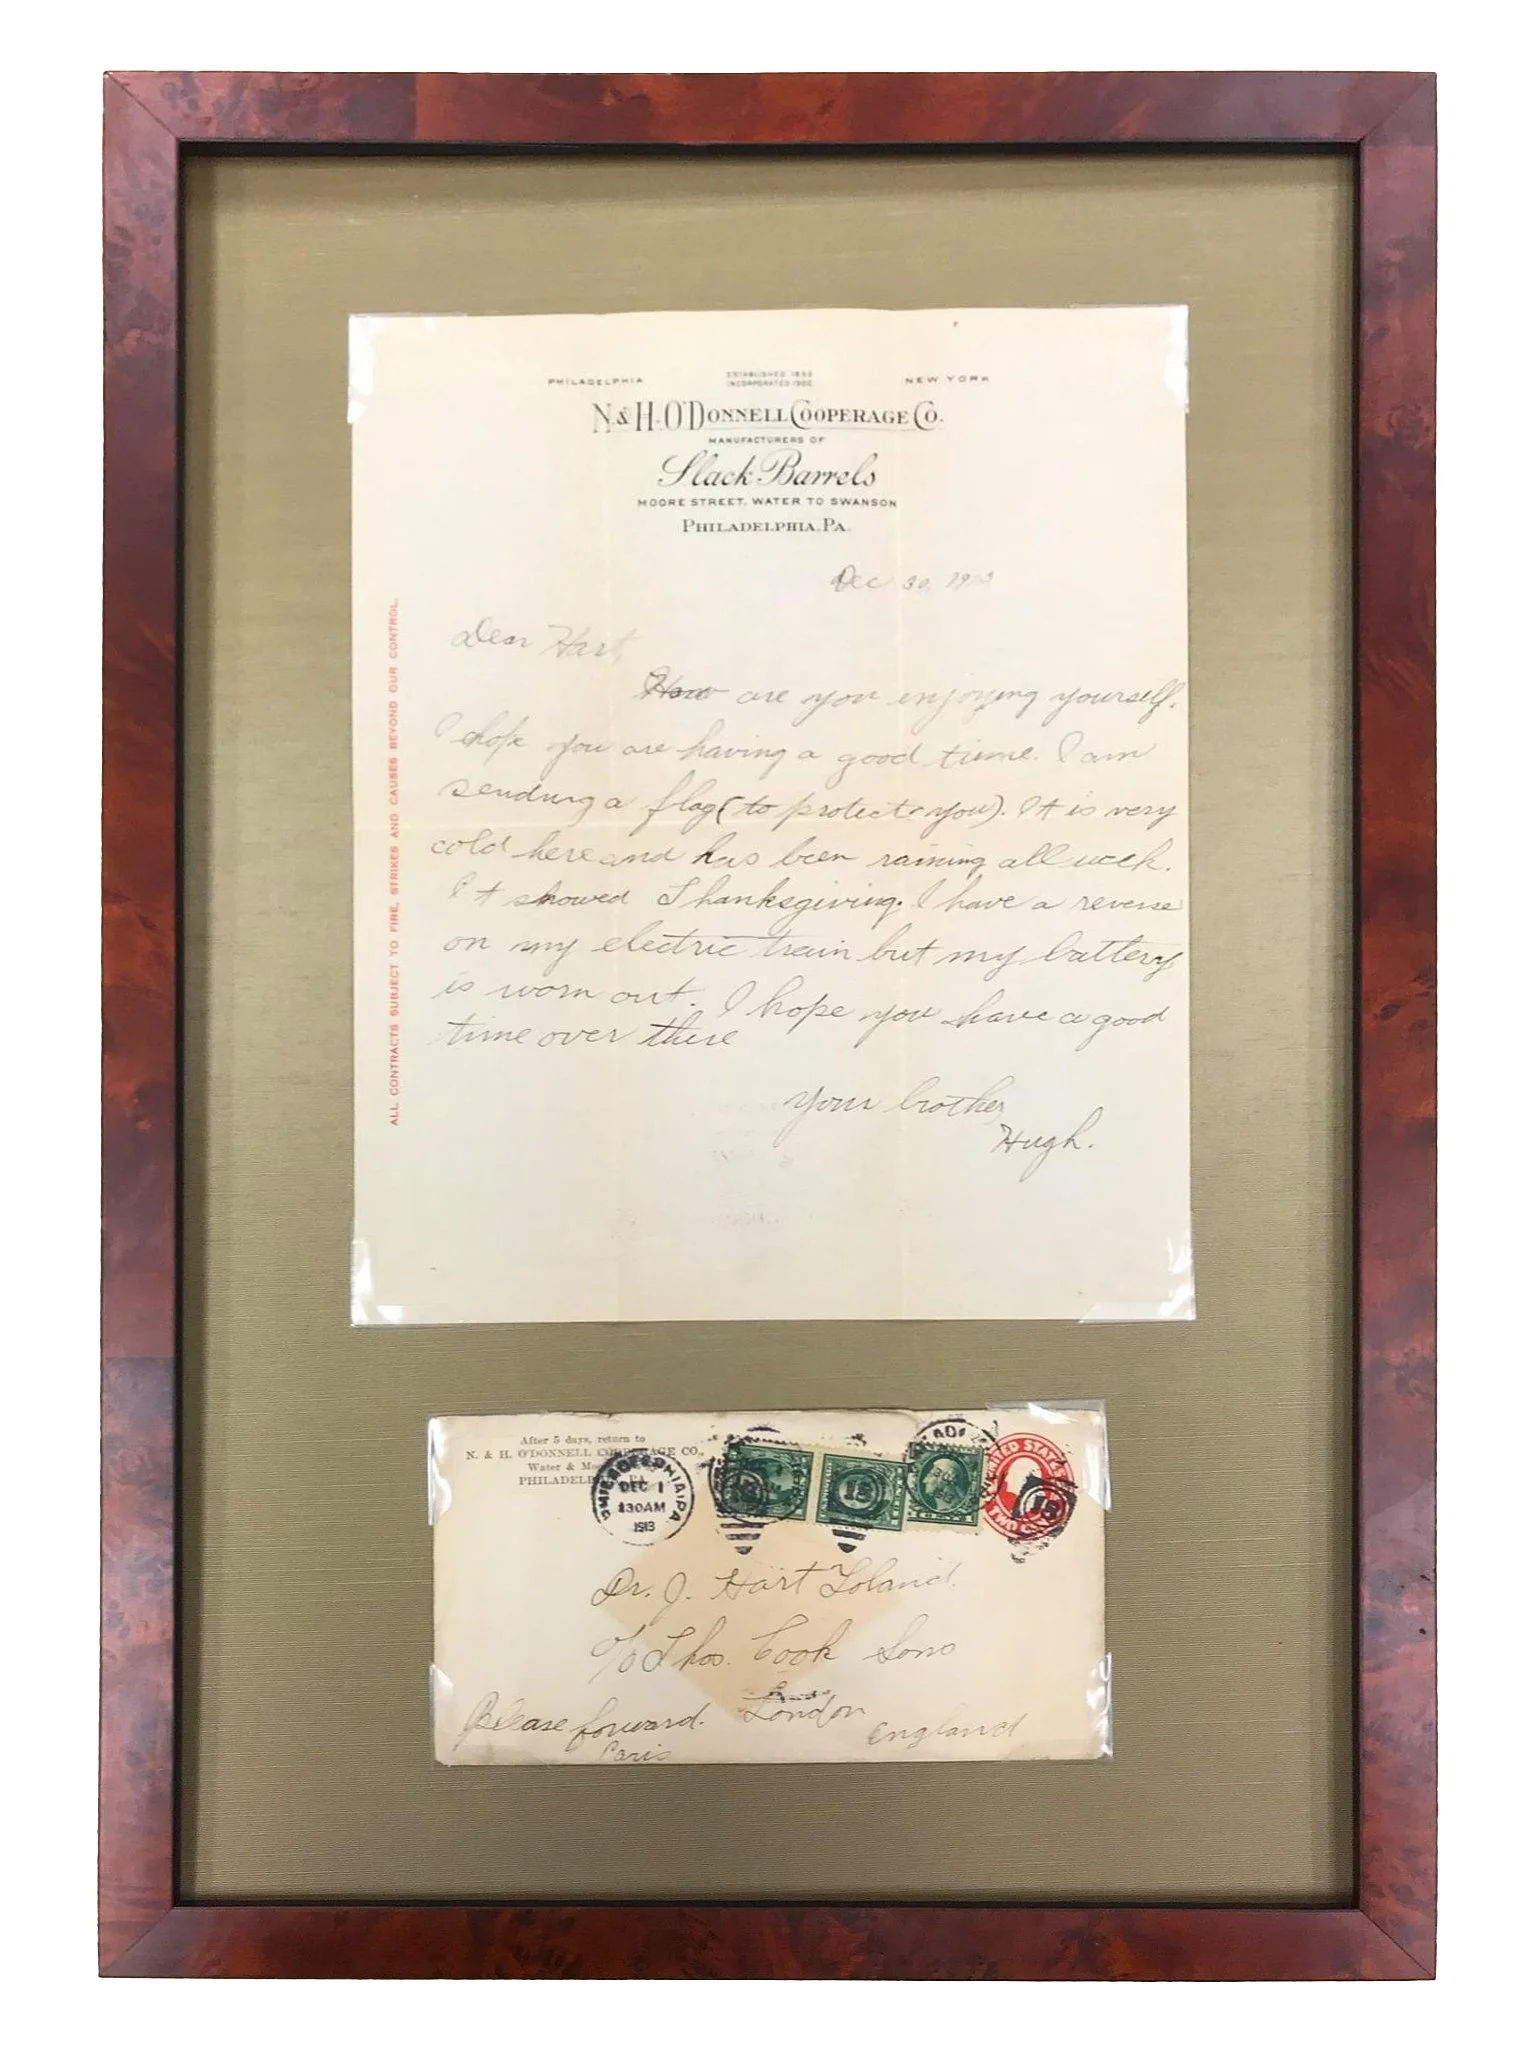 PHILADELPHIA ESTABLISHED 1852 NEW YORK
INCORPORATED 1902
N. & H. O'DONNELL COOPERAGE CO.
MANUFACTURERS OF
Slack Barrels
MOORE STREET, WATER TO SWANSON
PHILADELPHIA, PA.
Dec 30, 1913
Dear Hart,
How are you enjoying yourself.
I hope you are having a good time. I am
sending a flag (to protect you). It is very
cold here and has been raining all week.
It snowed Thanksgiving. I have a reverse
on my electric train but my battery
is worn out. I hope you have a good
time over there
Your brother,
Hugh.
ALL CONTRACTS SUBJECT TO FIRE, STRIKES AND CAUSES BEYOND OUR CONTROL.
After 5 days, return to
N. & H. O'DONNELL COOPERAGE CO.,
Water &
PHILADELPHIA, PA.
PHILADELPHIA, PA.
DEC 1
130AM
1913
UNITED STATES
TWO
Dr. J. Hart Toland.
c/o Thos. Cook Sons
London
England
Please forward.
Paris